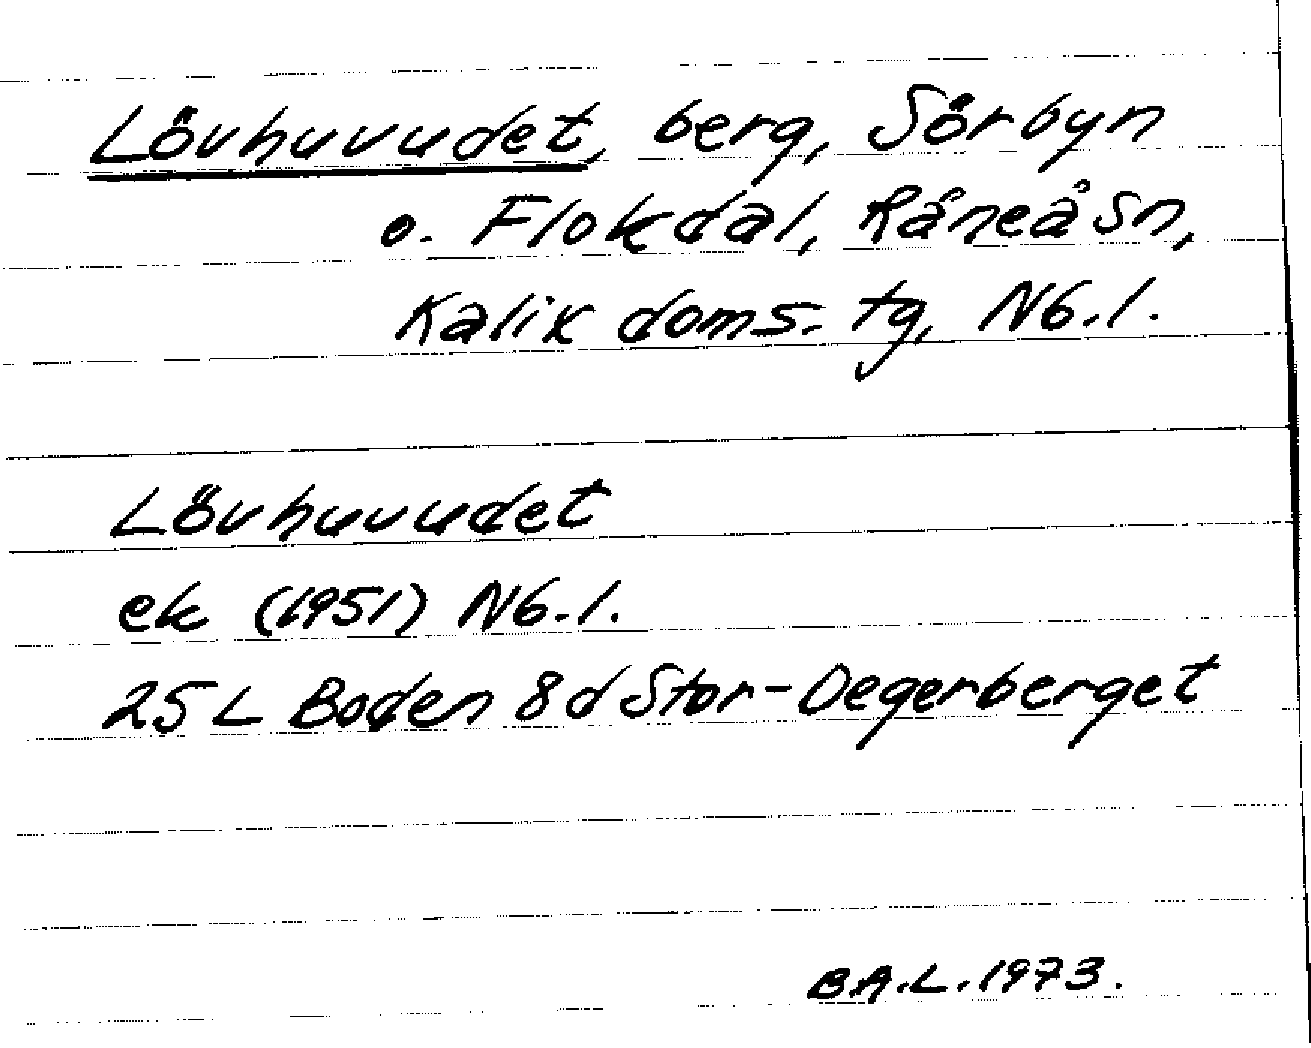 Lövhuvudet, berg, Sörbyn
o. Flokdal, Råneå Sn,
Kalix doms. tg, Nb.l.
Lövhuvudet
ek (1951) Nb.l.
25 L Boden 8d Stor-Degerberget
B.A.L. 1973.